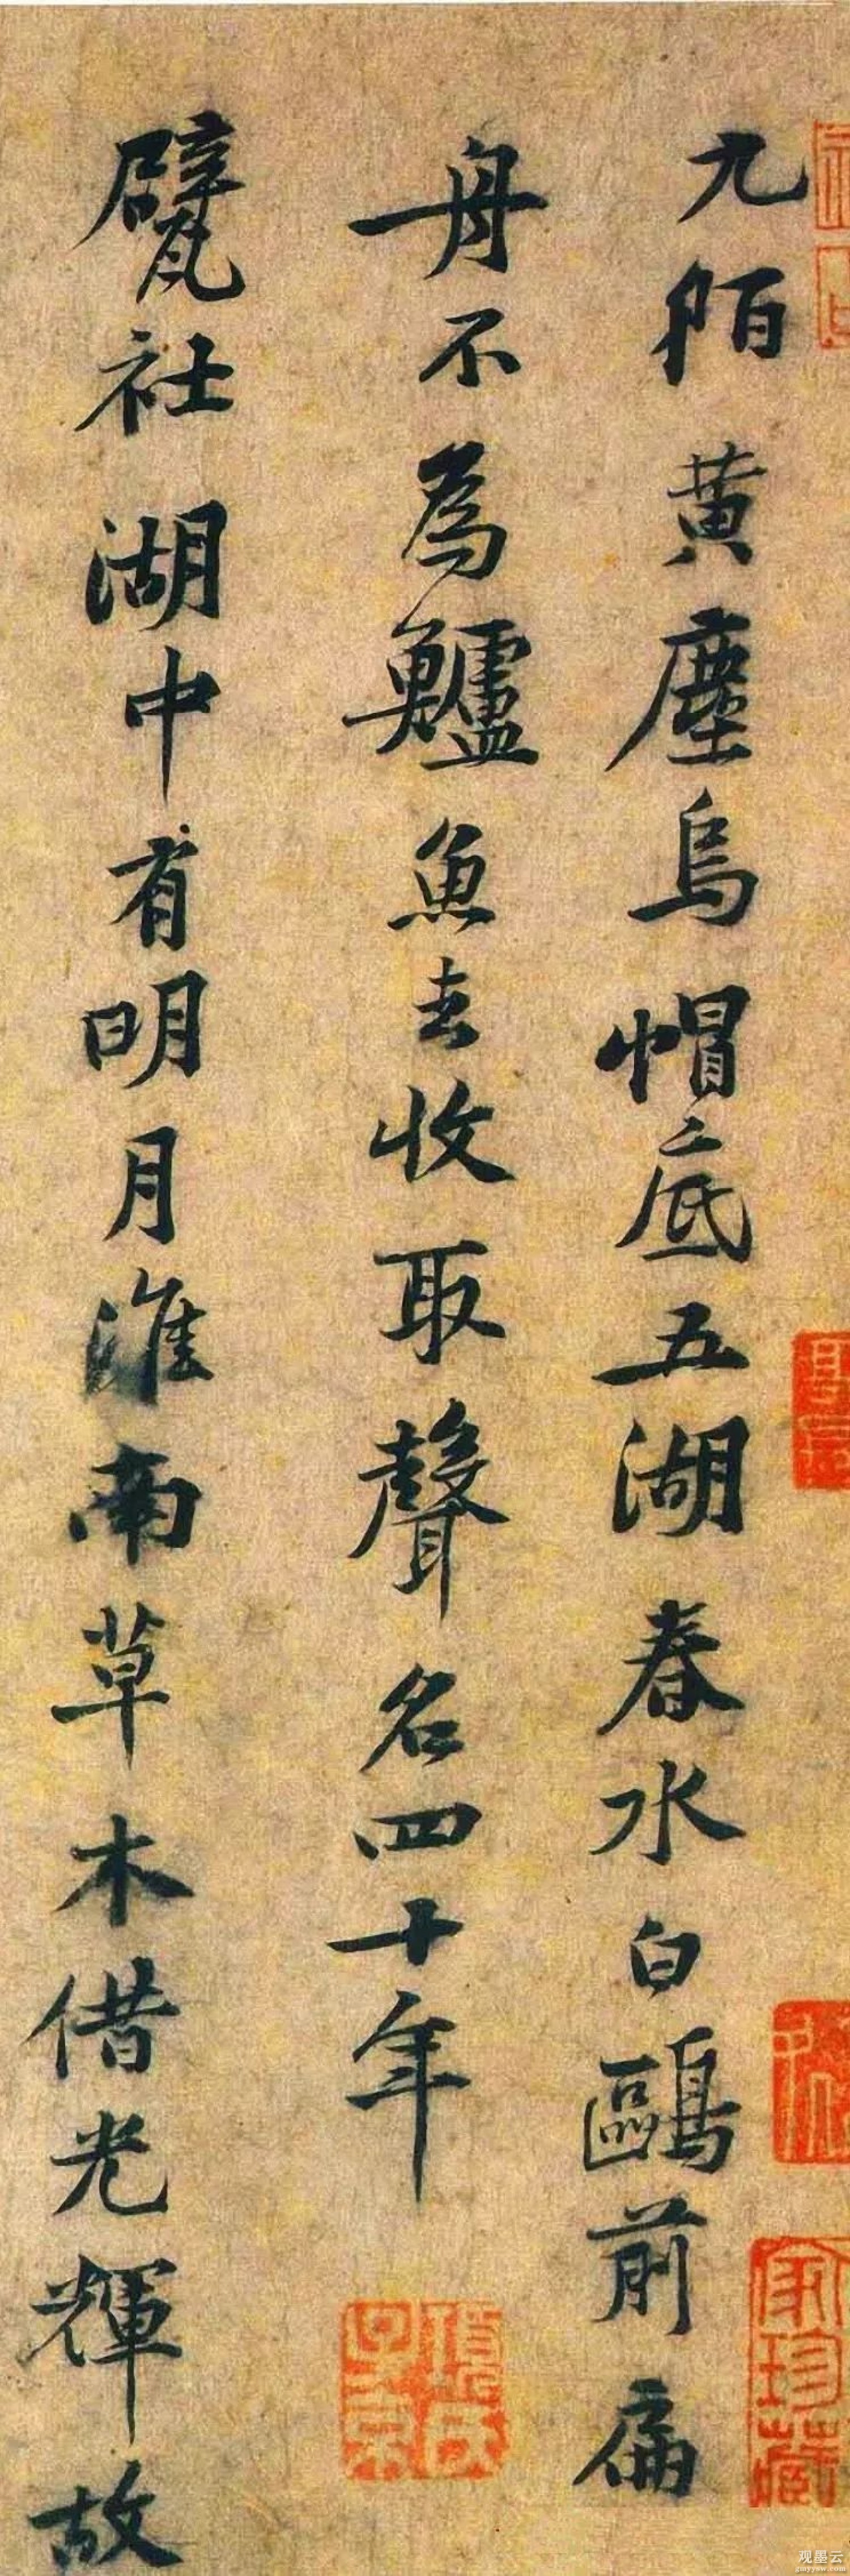 九陌黃塵烏帽底五湖春水白鷗前扁
舟不為鱸魚去收取聲名四十年
甓社湖中有明月淮南草木借光輝故
項氏子京
家珍藏
观墨云